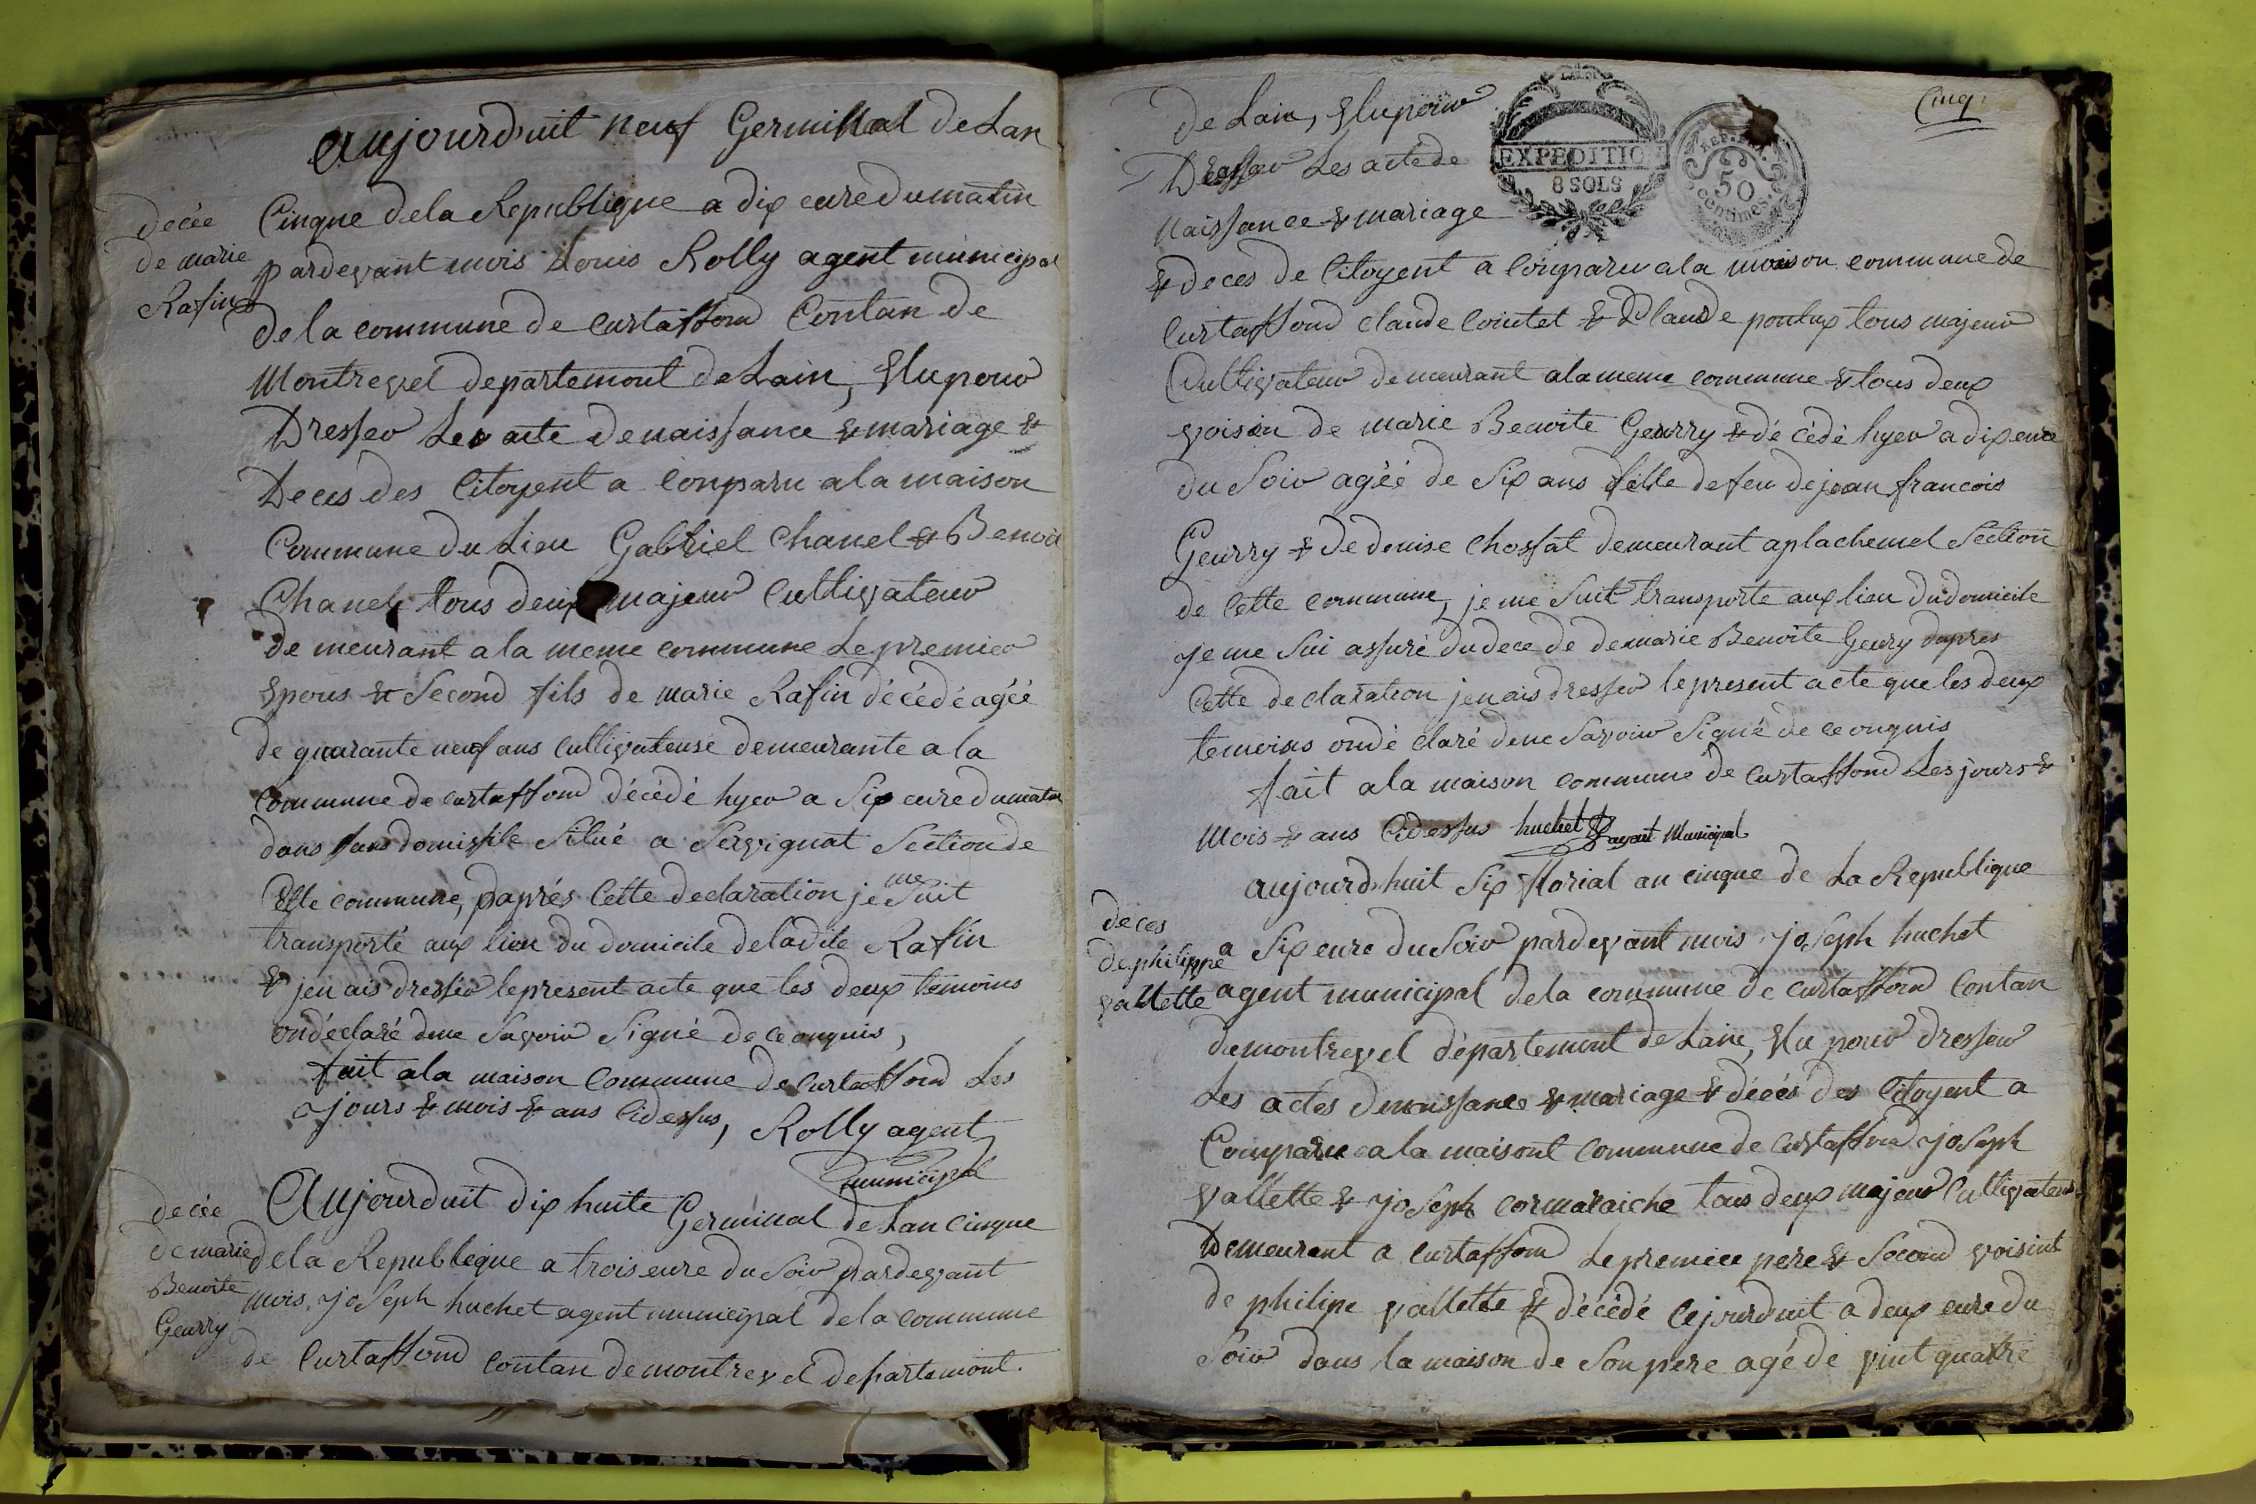 aujourduit neuf Germinal de Lan
decée
de marie
Rafin
Cinque dela Republique a dix eure du matin
pardevant mois Louis Rolly agent municipal
de la commune de Curtaffond Contan de
Montrevel departemont de Lain, Elu pour
Dresser Les acte de naissance & mariage &
Deces des Citoyent a Conparu ala maison
Commune du Lieu Gabriel Chanel & Benoit
Chanel tous deux majeur Cultivateur
de meurant a la meme commune Le premier
Epous & Second fils de marie Rafin décédé agéé
de quarante neuf ans Cultivateuse demeurante a la
Commune de Curtaffond décédé hyer a Six eure du matin
dans sans domissile Situé a Servignat Section de
Cette commune, daprés Cette declaration je me Suit
transporté aux lieu du domicile deladite Rafin
& jen ais dresser lepresent acte que les deux temoins
ondéclaré dene Savoir Signé de ce onquis,
fait ala maison Commune de Curtaffond Les
jours & mois & ans Cidessus, Rolly agent
municipal
decée
de marie
Benoite
Geurry
Aujourduit dix huite Germinal de Lan Cinque
dela Republeique a trois eure du Soir pardevant
mois, joSeph huchet agent municipal dela commune
de Curtaffond Contan de montrevel departemont.
Cinq
EXPEDITION
8 SOLS
REP. FRA.
50
Centimes.
de Lain, Elu pour
Dresser Les acte de
Naissance & mariage
& deces de Citoyent a Conparu ala maison commune de
Curtaffond Claude Cointet & Claude ponlux tous majeur
Cultivateur demeurant alameme commune & tous deux
voisin de marie Benoite Geurry & dé cédé hyer a dix eure
du Soir agéé de Six ans fille defeu dejean francois
Geurry & de denise Chossat demeurant aplachemel Section
de Cette commune, je me Suit transporte aux lieu du domicile
je me Sui assuré du dece de demarie Benoite Geury dapres
Cette declaration jenais dresser lepresent acte que les deux
temoins ondé claré dene Savoir Signé de ce onquis
fait ala maison commune de Curtaffond Les jours &
Mois & ans Cidessus huchet agent Municipal
aujourdhuit Six florial an cinque de La Republique
deces
dephilippe
vallette
a Six eure du Soir pardevant mois joSeph huchet
agent municipal dela commune de Curtaffond Contan
demontrevel département de Lain, Elu pour dresser
Les actes denaissance & mariage & décés des Citoyent a
Comparue ala maisont Commune de Curtaffond joSeph
vallette & joSeph cormaraiche tous deux majeur Cultivateur
Demeurant a Curtaffond Lepremiee pere & Second voisint
de philipe vallette & décédé Cejourduit a deux eure du
Soir dans la maison de Sonpere agé de vint quatre